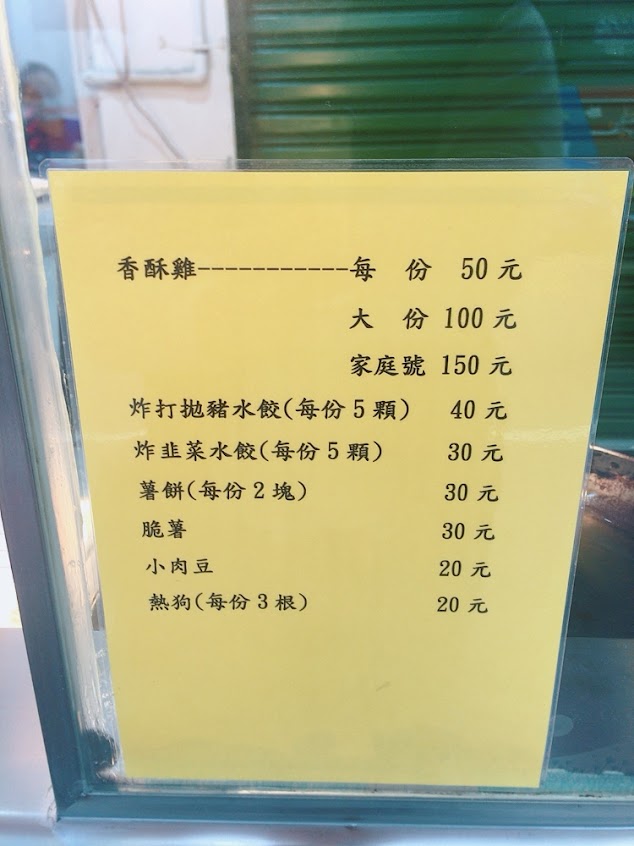 香酥雞-----------每 份 50元
大 份 100元
家庭號 150元
炸打拋豬水餃(每份5顆) 40元
炸韭菜水餃(每份5顆) 30元
薯餅(每份2塊) 30元
脆薯 30元
小肉豆 20元
熱狗(每份3根) 20元